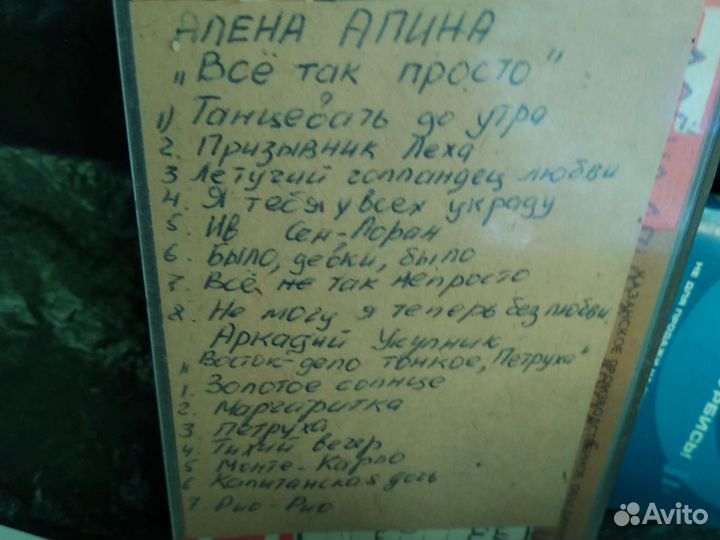 АЛЕНА АПИНА
„Всё так просто"
1) Танцевать до утра
2. Призывник Леха
3 Летучий голландец любви
4. Я тебя у всех украду
5. Ив Сен-Лоран
6. Было, девки, было
7. Всё не так непросто
8. Не могу я теперь без любви
Аркадий Укупник
„Восток-дело тонкое, Петруха"
1. Золотое солнце
2. Маргаритка
3 Петруха
4. Тихий вечер
5 Монте-Карло
6 Капитанская дочь
7. Рио-Рио
КАЗАНСКОЕ
НЕ ДЛЯ ПРОДАЖИ
РЕЙСЫ
Avito